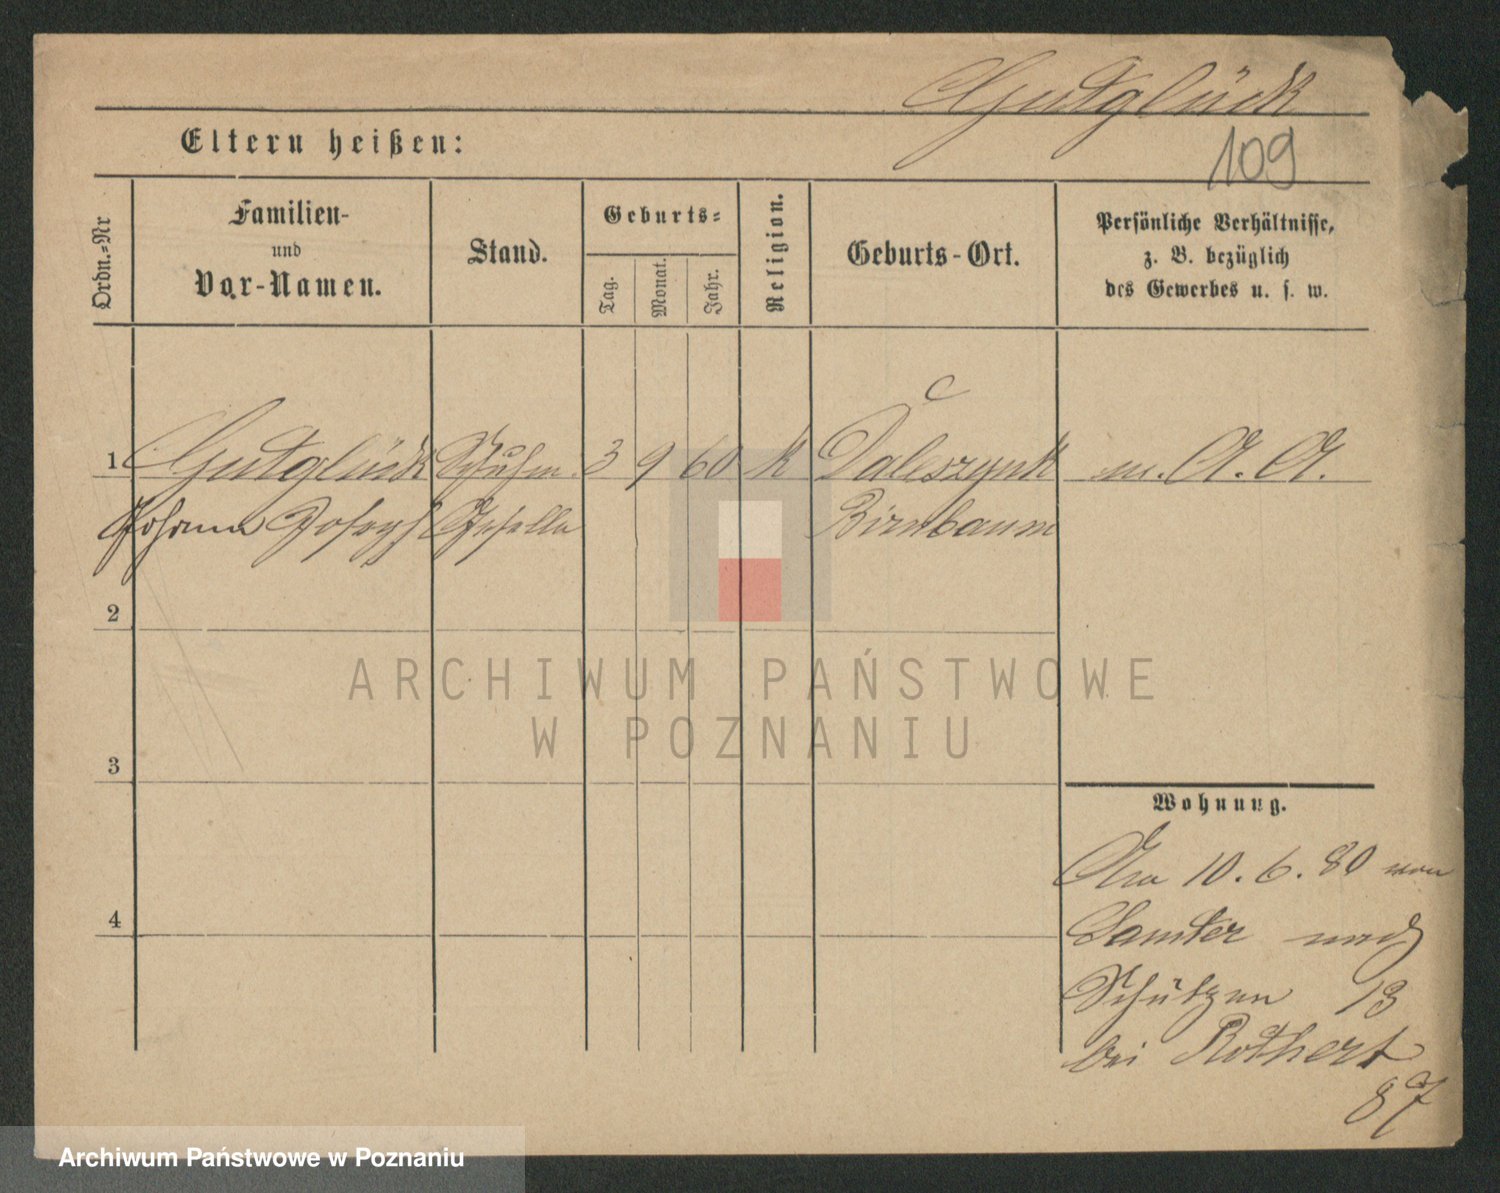 Gutglück
Eltern heißen:
109
Ordn.-Nr
Familien-
und
Vor-Namen.
Stand.
Geburts-
Tag.
Monat.
Jahr.
Religion.
Geburts-Ort.
Persönliche Verhältnisse,
z. B. bezüglich
des Gewerbes u. s. w.
1 Gutglück Schuhm. 3 9 60 k Daleszynk m. A. A.
Johann Joseph Geselle Birnbaum
2
3
4
Wohnung.
10. 6. 80 von
Samter nach
Schützen 13
bei Rothert
87
ARCHIWUM PAŃSTWOWE
W POZNANIU
Archiwum Państwowe w Poznaniu